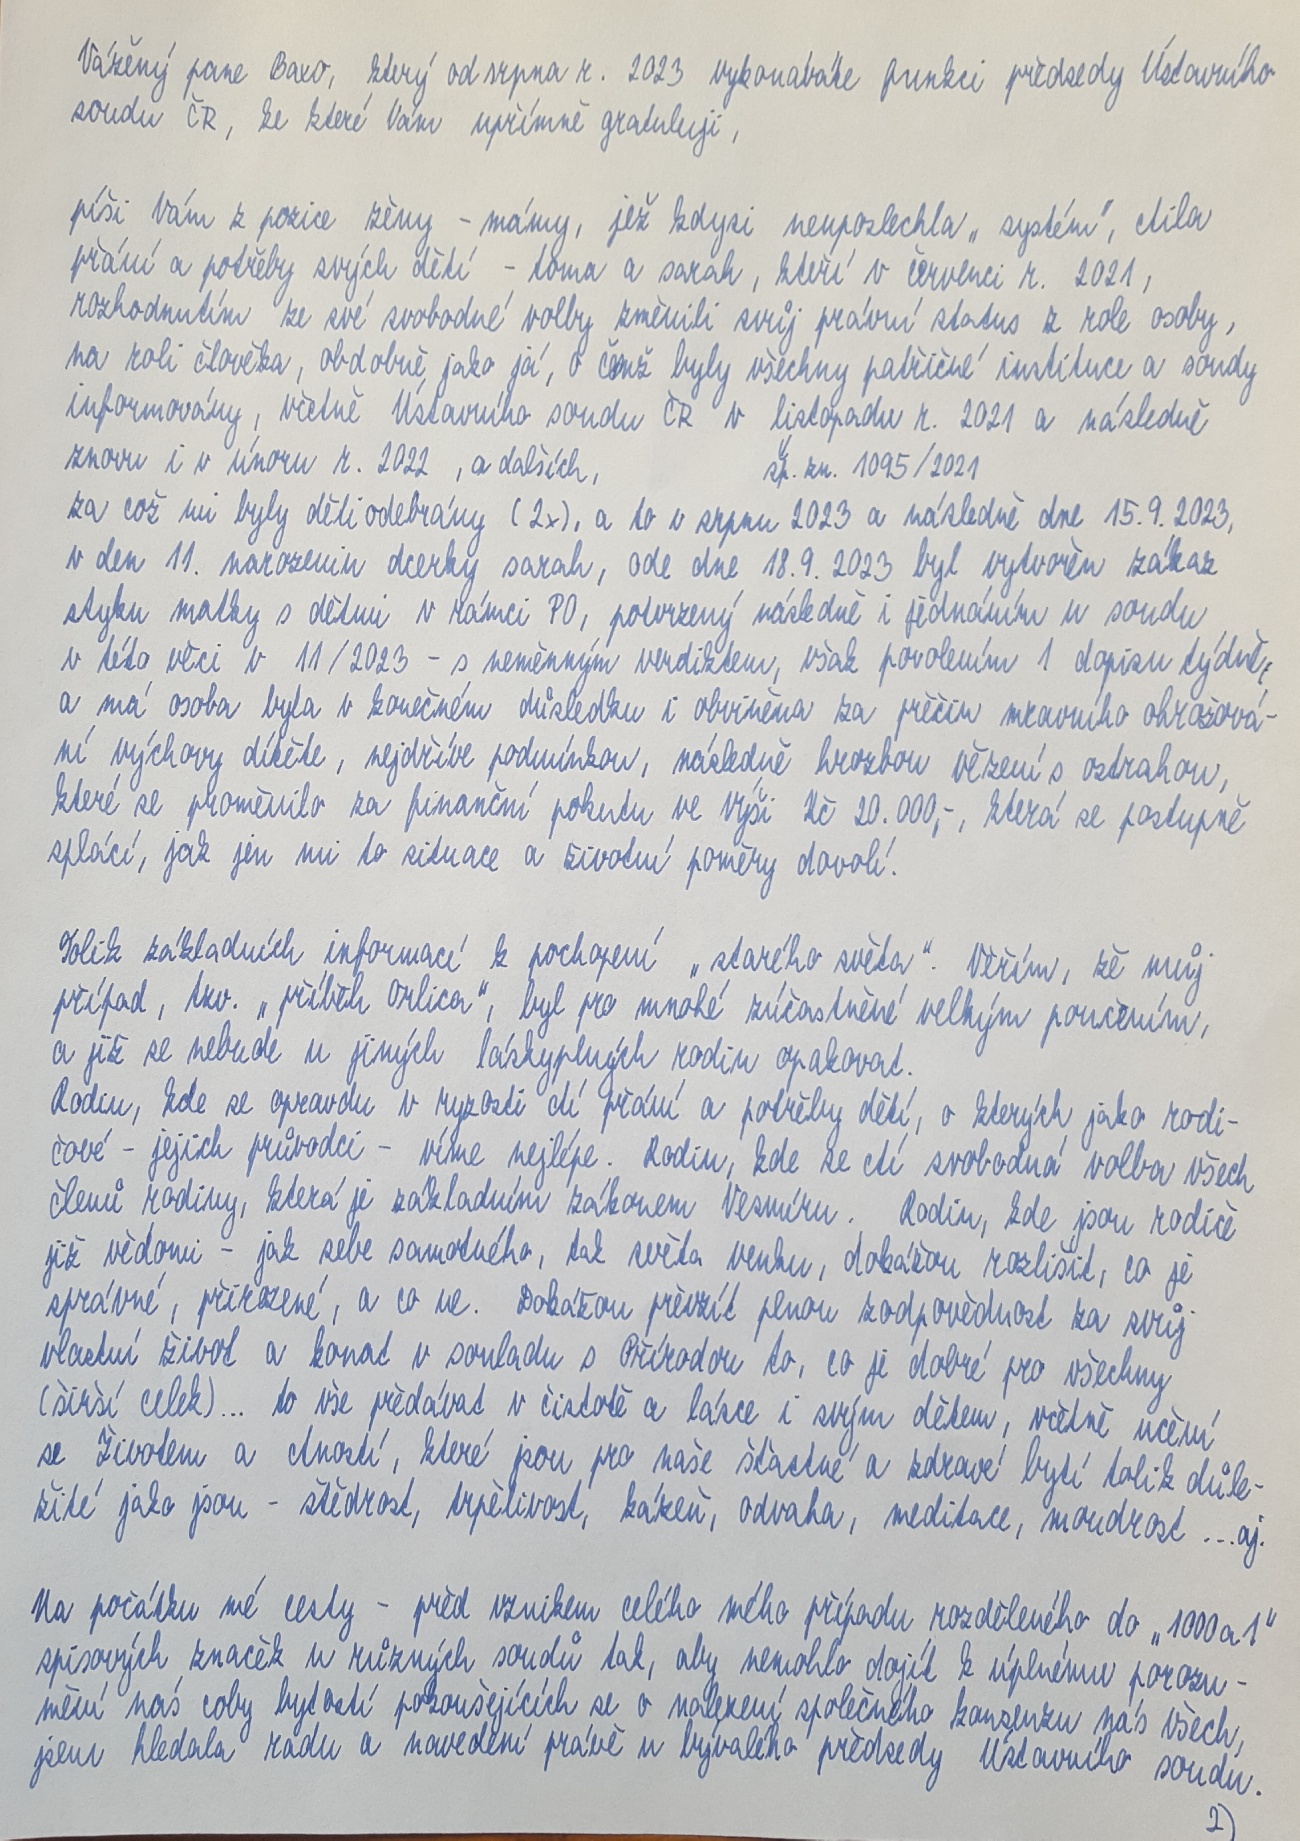 Vážěný pane Baxo, který od srpna r. 2023 vykonáváte funkci předsedy Ústavního
soudu ČR, ke které Vám upřímně gratuluji,
píši Vám z pozice žěny - mámy, jěž kdysi neuposlechla „systém", ctila
přání a potřěby svých dětí - toma a sarah, kteří v červenci r. 2021,
rozhodnutím ze své svobodné volby změnili svůj právní status z role osoby,
na roli člověka, obdobně jako já, o čemž byly všechny patřičné instituce a soudy
informovány, včetně Ústavního soudu ČR v listopadu r. 2021 a následně
znovu i v únoru r. 2022 , a dalších, sp. zn. 1095/2021
za což mi byly děti odebrány (2x), a to v srpnu 2023 a následně dne 15.9.2023,
v den 11. narozenin dcerky sarah, ode dne 18.9.2023 byl vytvořěn zákaz
styku matky s dětmi v rámci PO, potvrzený následně i jědnáním u soudu
v této věci v 11/2023 - s neměnným verdiktem, však povolením 1 dopisu týdně,
a má osoba byla v konečném důsledku i obviněna za přěčin mravního ohrožová-
ní výchovy dítěte, nejdříve podmínkou, následně hrozbou vězení s ostrahou,
které se proměnilo za finanční pokutu ve výši Kč 20.000,-, která se postupně
splácí, jak jen mi to situace a životní poměry dovolí.
Tolik základních informací k pochopení „starého světa". Věřím, žě můj
případ, tzv. „příběh Orlica", byl pro mnohé zúčastněné velkým poučěním,
a již se nebude u jiných láskyplných rodin opakovat.
Rodin, kde se opravdu v ryzosti ctí přání a potřěby dětí, o kterých jako rodi-
čové - jejich průvodci - víme nejlépe. Rodin, kde se ctí svobodná volba všech
členů rodiny, která je základním zákonem Vesmíru. Rodin, kde jsou rodičě
již vědomi - jak sebe samotného, tak světa venku, dokážou rozlišit, co je
správné, přirozené, a co ne. Dokážou přěvzít plnou zodpovědnost za svůj
vlastní život a konat v souladu s Přírodou to, co je dobré pro všechny
(širší celek)... to vše přědávat v čistotě a lásce i svým dětem, včetně učění
se Životem a ctností, které jsou pro naše šťastné a zdravé bytí tolik důle-
žité jako jsou - štědrost, trpělivost, kázeň, odvaha, meditace, moudrost ...aj.
Na počátku mé cesty - přěd vznikem celého mého případu rozděleného do „1000 a 1"
spisových značěk u různých soudů tak, aby nemohlo dojít k úplnému porozu-
mění nás coby bytostí pokoušejících se o nalezení společného konsenzu nás všech,
jsem hledala radu a navedení právě u bývalého přědsedy Ústavního soudu.